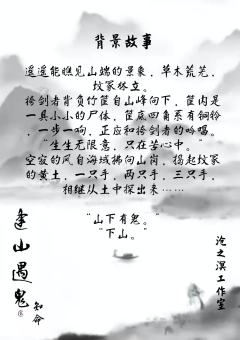 背景故事
遥遥能瞧见山端的景象，草木荒芜，
坟冢林立。
挎剑者背负竹筐自山峰向下，筐内是
一具小小的尸体，筐底四角系有铜铃，
一步一响，正应和挎剑者的吟唱。
“生生无限意，只在苦心中。”
空寂的风自海域拂向山岗，扬起坟冢
的黄土，一只手，两只手，三只手，
相继从土中探出来……
“山下有鬼。”
“下山。”
逢山遇鬼
知命
沧之溟工作室